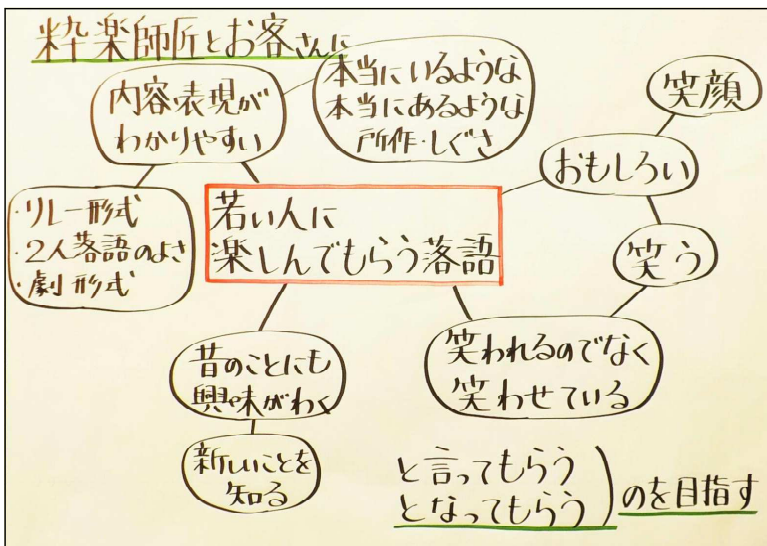 粋楽師匠とお客さんに
内容・表現が
わかりやすい
本当にいるような
本当にあるような
所作・しぐさ
笑顔
おもしろい
・リレー形式
・2人落語のよさ
・劇形式
若い人に
楽しんでもらう落語
笑う
昔のことにも
興味がわく
笑われるのでなく
笑わせている
新しいことを
知る
と言ってもらう
となってもらう
のを目指す